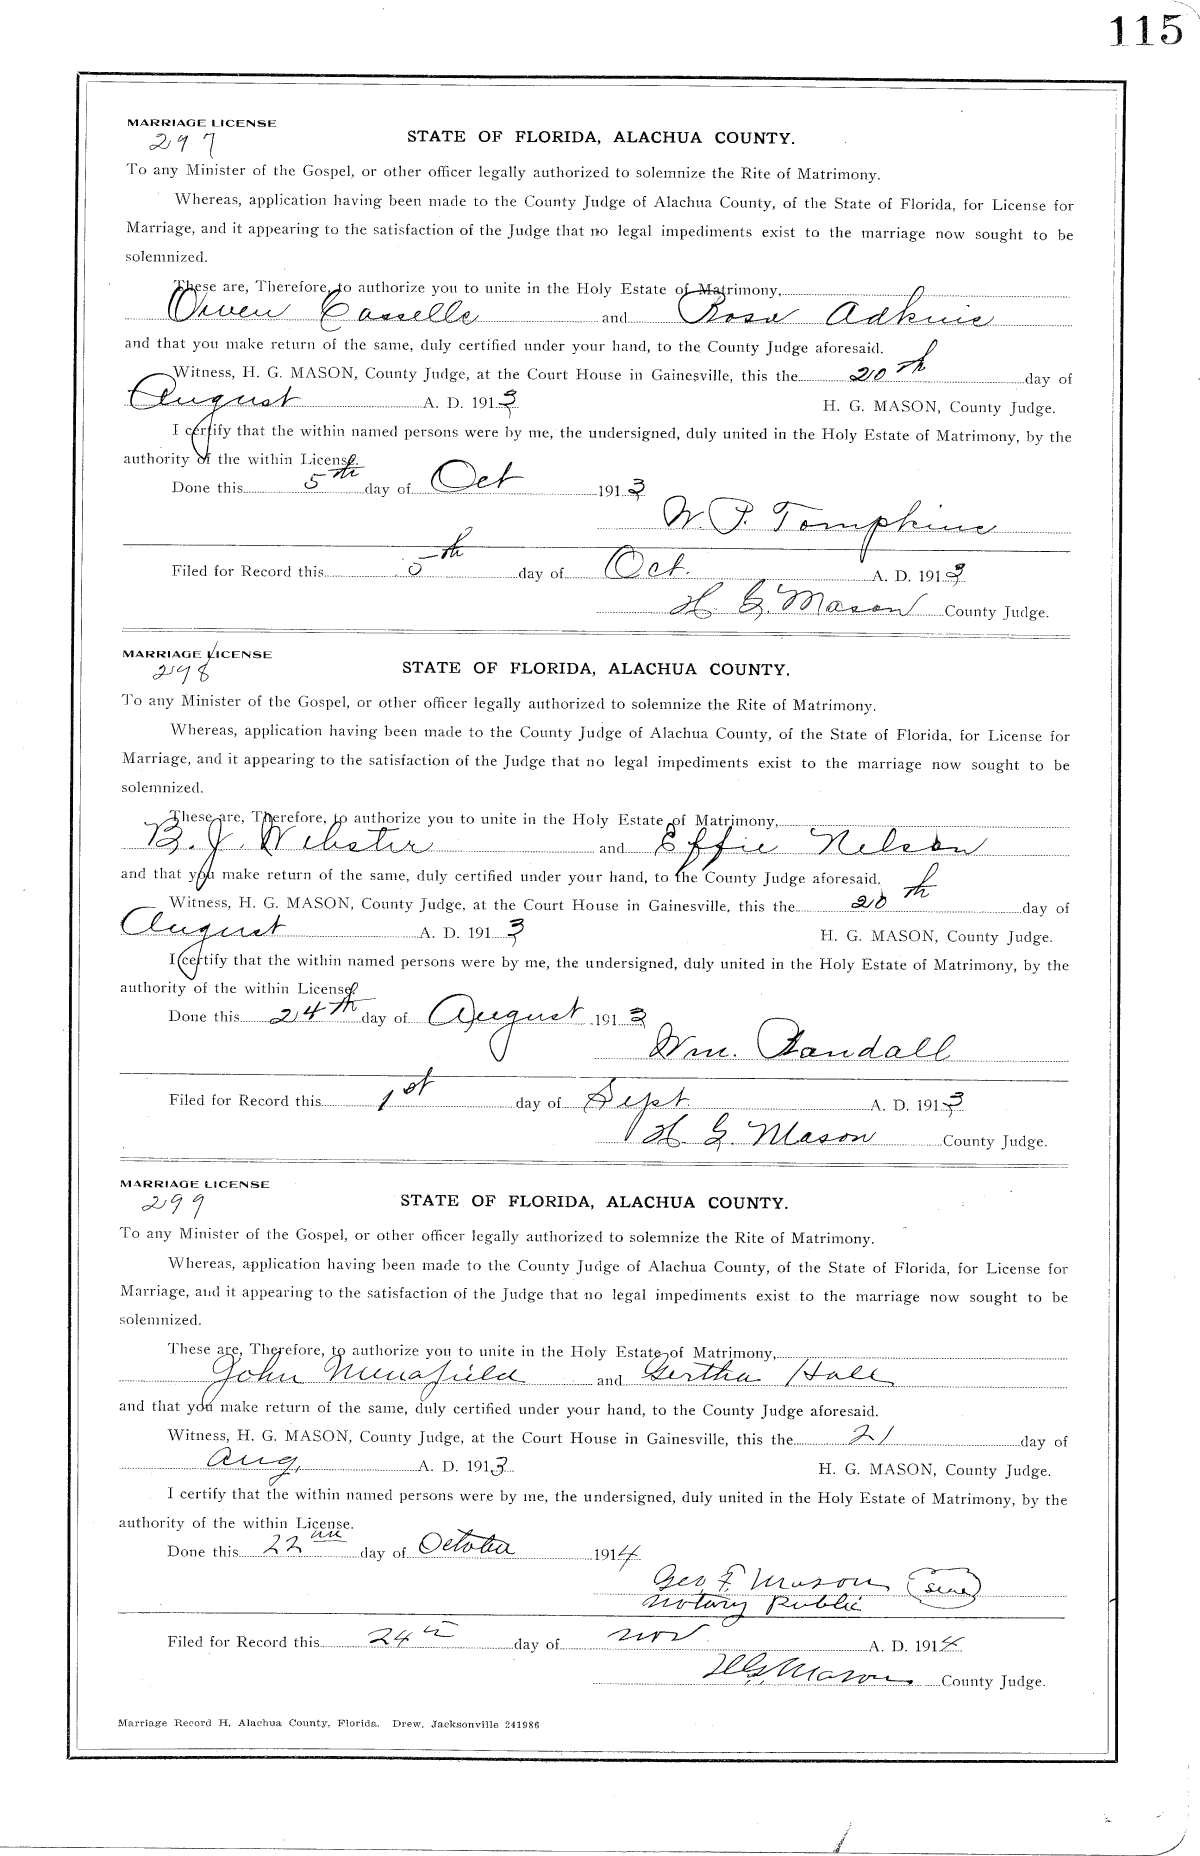 115
MARRIAGE LICENSE
297
STATE OF FLORIDA, ALACHUA COUNTY.
To any Minister of the Gospel, or other officer legally authorized to solemnize the Rite of Matrimony.
Whereas, application having been made to the County Judge of Alachua County, of the State of Florida, for License for
Marriage, and it appearing to the satisfaction of the Judge that no legal impediments exist to the marriage now sought to be
solemnized.
These are, Therefore, to authorize you to unite in the Holy Estate of Matrimony,
Owen Cassells and Rosa Adkins
and that you make return of the same, duly certified under your hand, to the County Judge aforesaid.
Witness, H. G. MASON, County Judge, at the Court House in Gainesville, this the 20th day of
August A. D. 1913 H. G. MASON, County Judge.
I certify that the within named persons were by me, the undersigned, duly united in the Holy Estate of Matrimony, by the
authority of the within License.
Done this 5th day of Oct 1913
W. P. Tompkins
Filed for Record this 5th day of Oct. A. D. 1913
H. G. Mason County Judge.
MARRIAGE LICENSE
298
STATE OF FLORIDA, ALACHUA COUNTY.
To any Minister of the Gospel, or other officer legally authorized to solemnize the Rite of Matrimony.
Whereas, application having been made to the County Judge of Alachua County, of the State of Florida, for License for
Marriage, and it appearing to the satisfaction of the Judge that no legal impediments exist to the marriage now sought to be
solemnized.
These are, Therefore, to authorize you to unite in the Holy Estate of Matrimony,
B. J. Webster and Effie Nelson
and that you make return of the same, duly certified under your hand, to the County Judge aforesaid.
Witness, H. G. MASON, County Judge, at the Court House in Gainesville, this the 20th day of
August A. D. 1913 H. G. MASON, County Judge.
I certify that the within named persons were by me, the undersigned, duly united in the Holy Estate of Matrimony, by the
authority of the within License.
Done this 24th day of August 1913
Wm. Randall
Filed for Record this 1st day of Sept. A. D. 1913
H. G. Mason County Judge.
MARRIAGE LICENSE
299
STATE OF FLORIDA, ALACHUA COUNTY.
To any Minister of the Gospel, or other officer legally authorized to solemnize the Rite of Matrimony.
Whereas, application having been made to the County Judge of Alachua County, of the State of Florida, for License for
Marriage, and it appearing to the satisfaction of the Judge that no legal impediments exist to the marriage now sought to be
solemnized.
These are, Therefore, to authorize you to unite in the Holy Estate of Matrimony,
John and Gertha Hall
and that you make return of the same, duly certified under your hand, to the County Judge aforesaid.
Witness, H. G. MASON, County Judge, at the Court House in Gainesville, this the 21 day of
Aug, A. D. 1913 H. G. MASON, County Judge.
I certify that the within named persons were by me, the undersigned, duly united in the Holy Estate of Matrimony, by the
authority of the within License.
Done this 22nd day of October 1914
Geo. F. Mason Seal
Notary Public
Filed for Record this 24th day of Nov A. D. 1914
H. G. Mason County Judge.
Marriage Record H, Alachua County, Florida. Drew, Jacksonville 241986